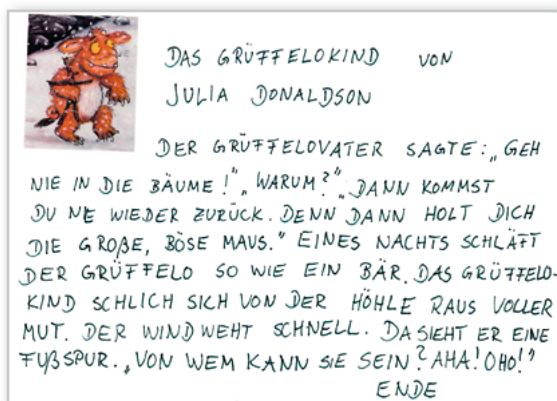 DAS GRÜFFELOKIND VON
JULIA DONALDSON
DER GRÜFFELOVATER SAGTE: „GEH
NIE IN DIE BÄUME!" „WARUM?" „DANN KOMMST
DU NE WIEDER ZURÜCK. DENN DANN HOLT DICH
DIE GROßE, BÖSE MAUS." EINES NACHTS SCHLÄFT
DER GRÜFFELO SO WIE EIN BÄR. DAS GRÜFFELO-
KIND SCHLICH SICH VON DER HÖHLE RAUS VOLLER
MUT. DER WIND WEHT SCHNELL. DA SIEHT ER EINE
FUßSPUR. „VON WEM KANN SIE SEIN? AHA! OHO!"
ENDE